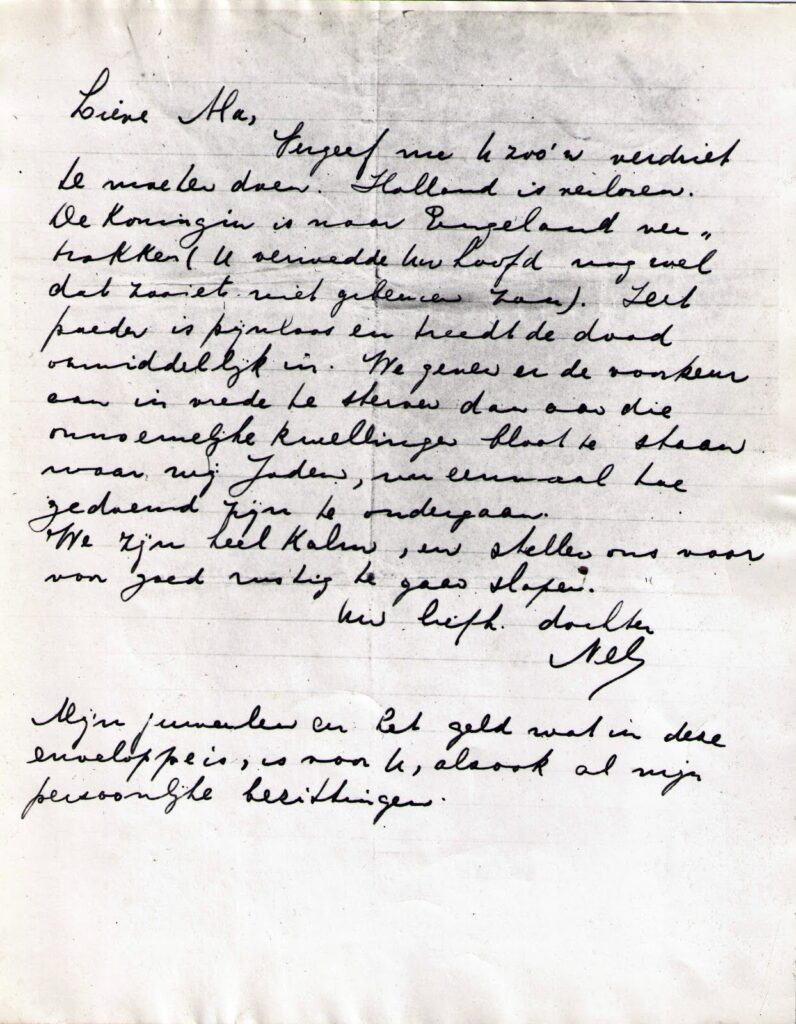 Lieve Ma,
Vergeef me U zoo'n verdriet
te moeten doen. Holland is verloren.
De Koningin is naar Engeland ver„
trokken ( U verwedde Uw hoofd nog wel
dat zooiets niet gebeuren zou). Het
poeder is pijnloos en treedt de dood
onmiddellijk in. We geven er de voorkeur
aan in vrede te sterven dan aan die
onnoemelijke kwellingen bloot te staan
waar wij Joden, nu eenmaal toe
gedoemd zijn te ondergaan.
We zijn heel kalm, en stellen ons voor
voor goed rustig te gaan slapen.
Uw liefh. dochter
Nel
Mijn juweelen en het geld wat in deze
enveloppe is, is voor U, alsook al mijn
persoonlijke bezittingen.